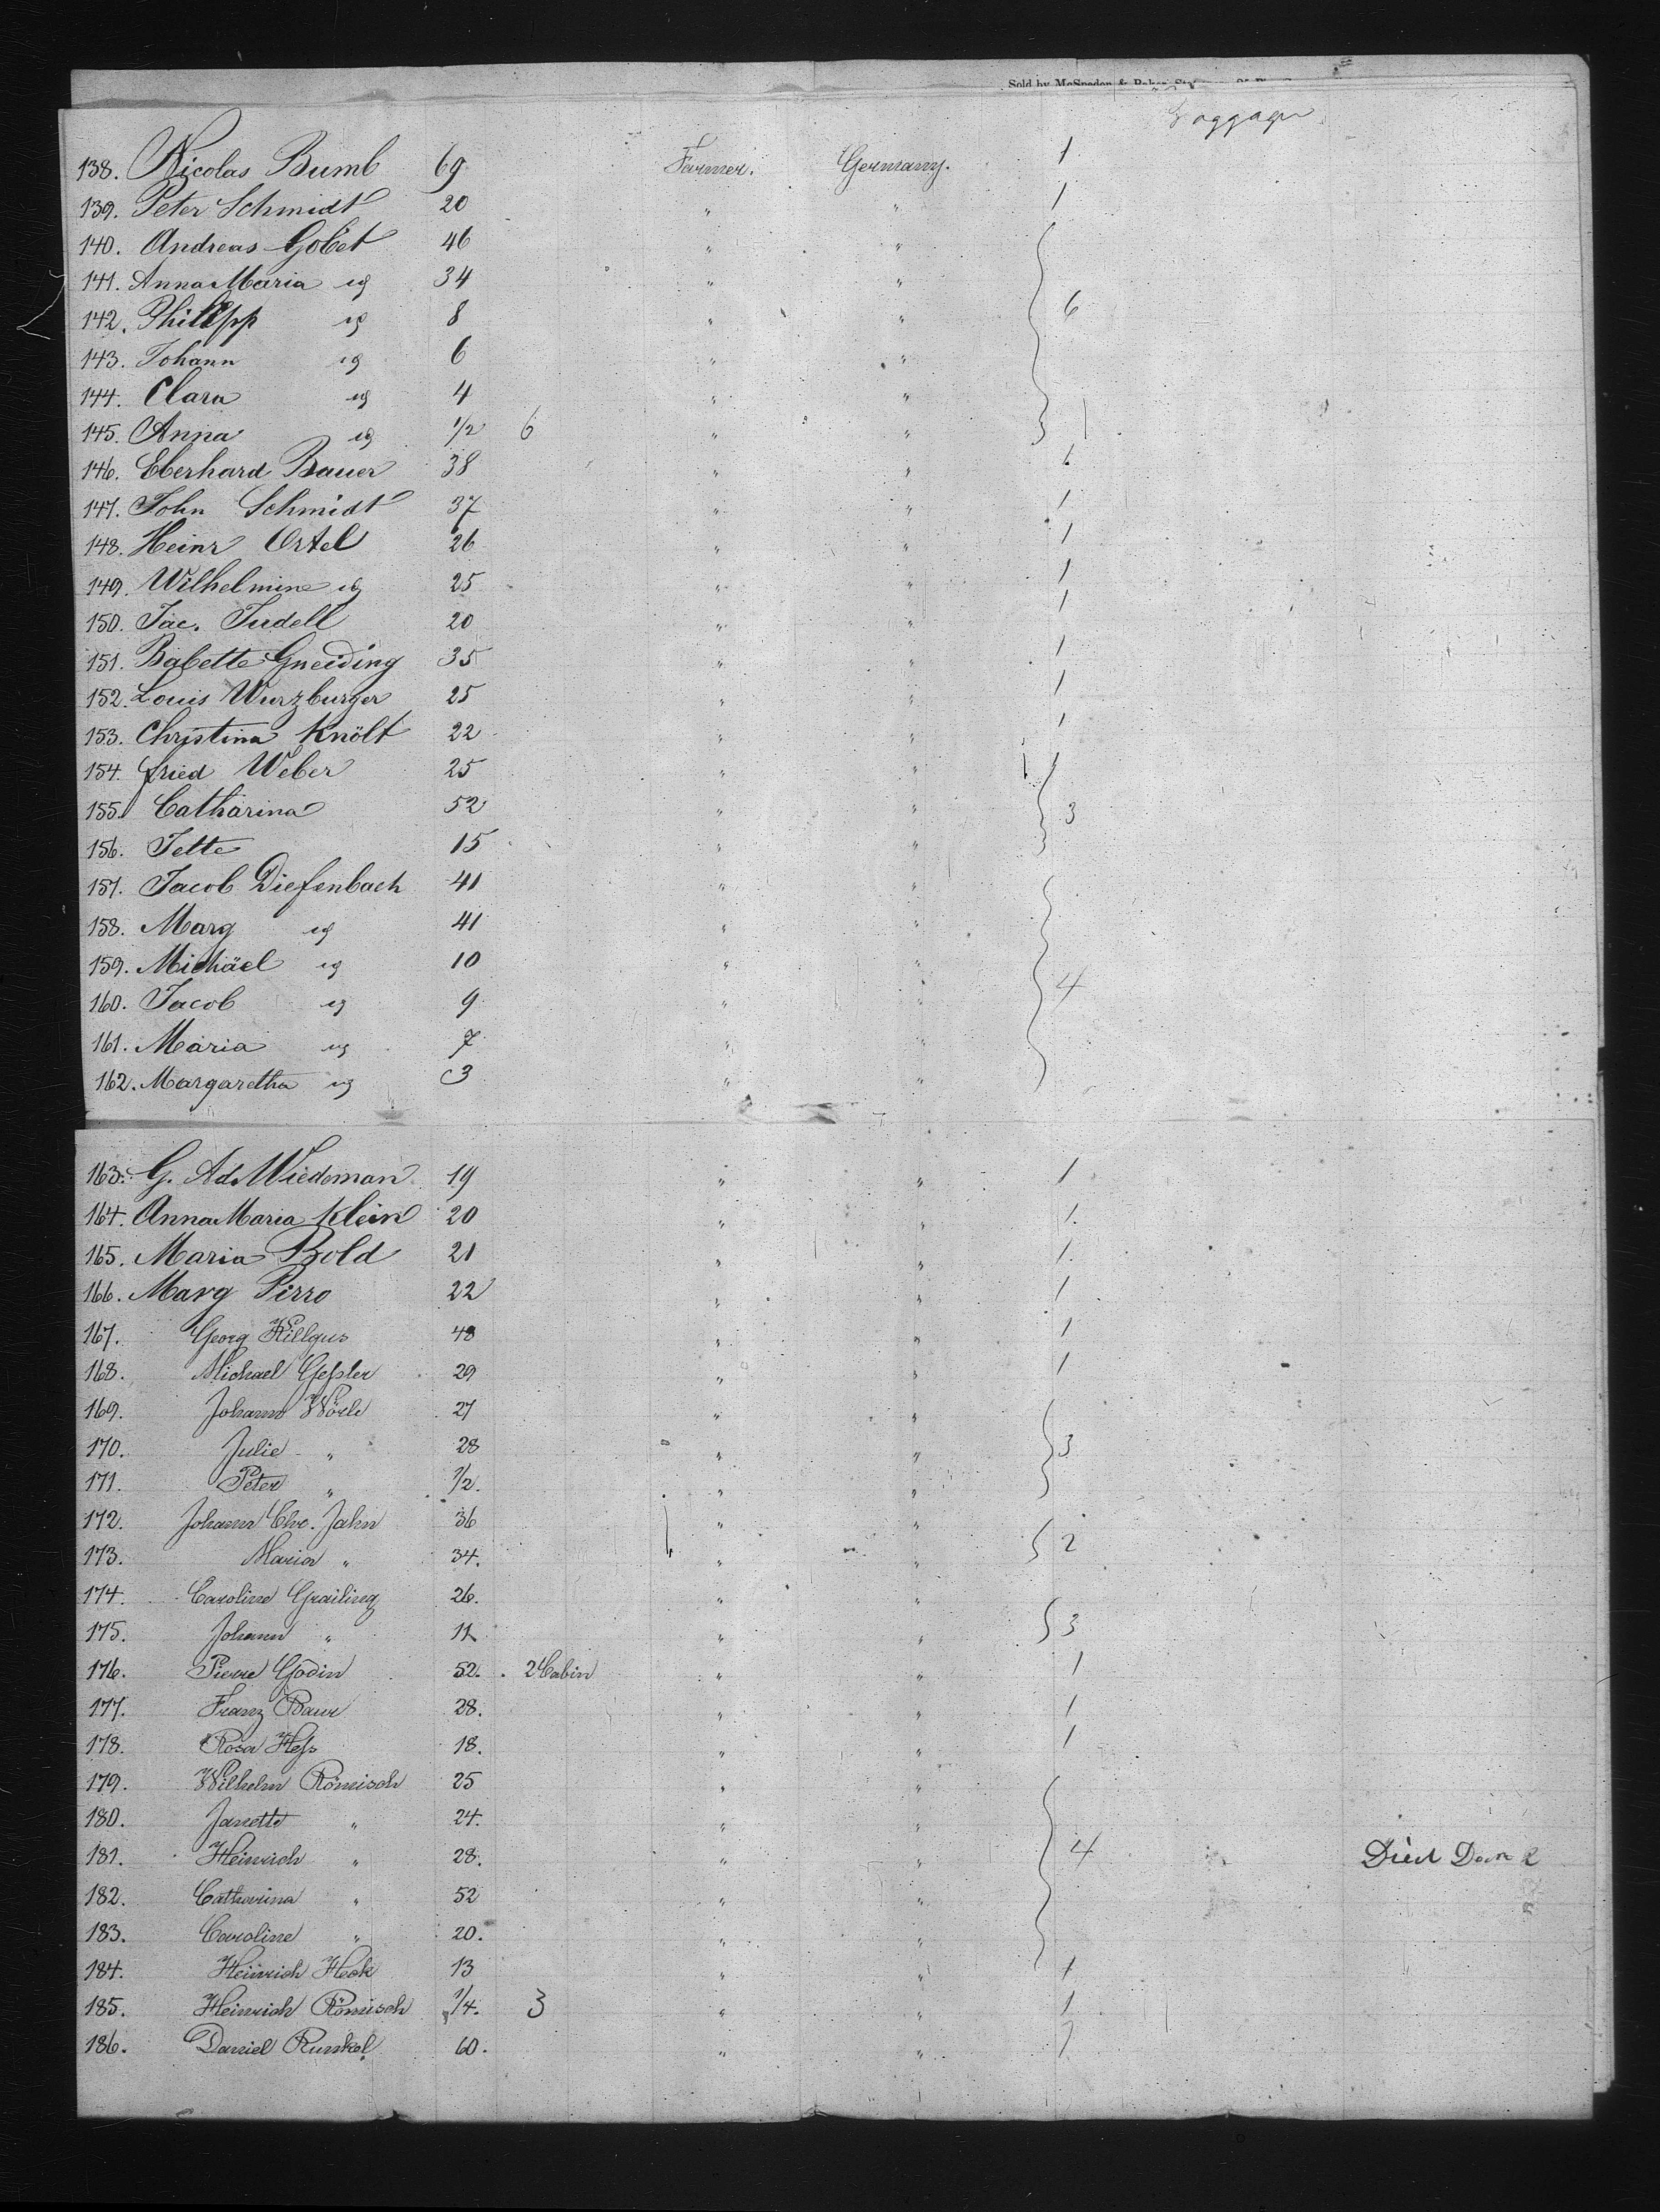 Sold by McSpedon & Baker
Baggage
138. Nicolas Bumb 69 Farmer. Germany. 1
139. Peter Schmidt 20 " " 1
140. Andreas Gobet 46 " "
141. Anna Maria " 34 " "
142. Philipp " 8 " " 6
143. Johann " 6 " "
144. Clara " 4 " "
145. Anna " 1/2 6 " "
146. Eberhard Bauer 38 " " 1
147. John Schmidt 37 " " 1
148. Heinr Ortel 26 " " 1
149. Wilhelmine " 25 " " 1
150. Jac. Judell 20 " " 1
151. Babette Gneiding 35 " " 1
152. Louis Wurzburger 25 " " 1
153. Christina Knölt 22 " " 1
154. fried Weber 25 " "
155. Catharina 52 " " 3
156. Jette 15 " "
157. Jacob Diefenbach 41 " "
158. Marg " 41 " "
159. Michäel " 10 " "
160. Jacob " 9 " " 4
161. Maria " 7 " "
162. Margaretha " 3 " "
163. G. Ad. Wiedeman 19 " " 1
164. Anna Maria Klein 20 " " 1.
165. Maria Bold 21 " " 1.
166. Marg Pirro 22 " " 1
167. Georg Killgus 48 " " 1
168. Michael Geßler 29 " " 1
169. Johann Wörle 27 " "
170. Julie " 28 " " 3
171. Peter " 1/2. " "
172. Johann Chr. Jahn 36 " "
173. Maria " 34. " " 2
174. Caroline Grailing 26. " "
175. Johann " 11. " " 3
176. Pierre Godin 52. 2 Cabin " " 1
177. Franz Baur 28. " " 1
178. Rosa Heß 18. " " 1
179. Wilhelm Römisch 25 " "
180. Janette " 24. " "
181. Heinrich " 28. " " 4 Died
182. Catharina " 52 " "
183. Caroline " 20. " "
184. Heinrich Heck 13 " " 1
185. Heinrich Römisch 1/4. 3 " " 1
186. Daniel Runkel 60. " " 1